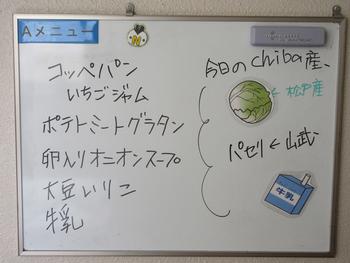 Aメニュー
コッペパン
いちごジャム
ポテトミートグラタン
卵入りオニオンスープ
大豆いりこ
牛乳
今日のchiba産、
←松戸産
パセリ←山武
牛乳